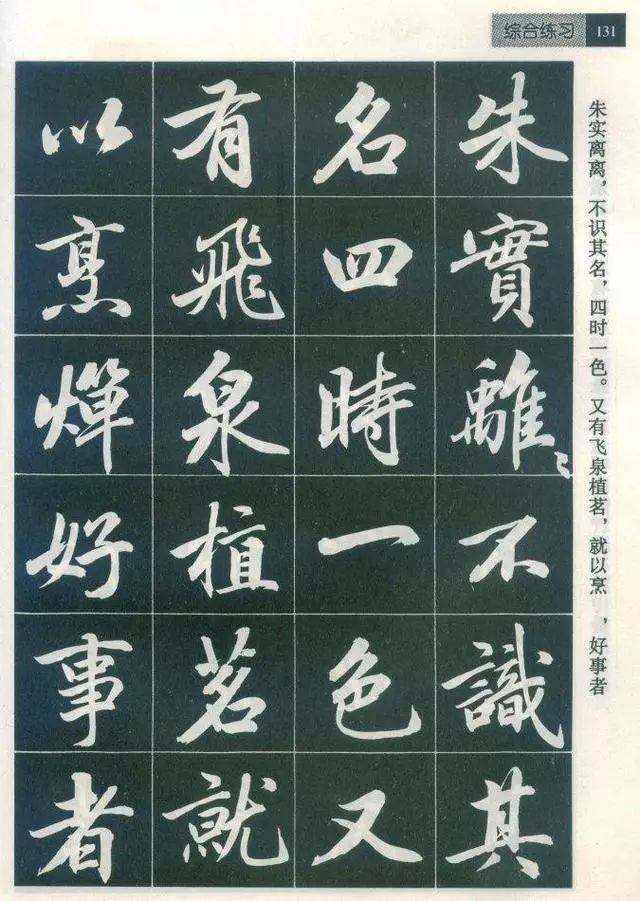 综合练习 131
朱實離〻不識其
名四時一色又
有飛泉植茗就
以烹燀好事者
朱实离离，不识其名，四时一色。又有飞泉植茗，就以烹 ，好事者